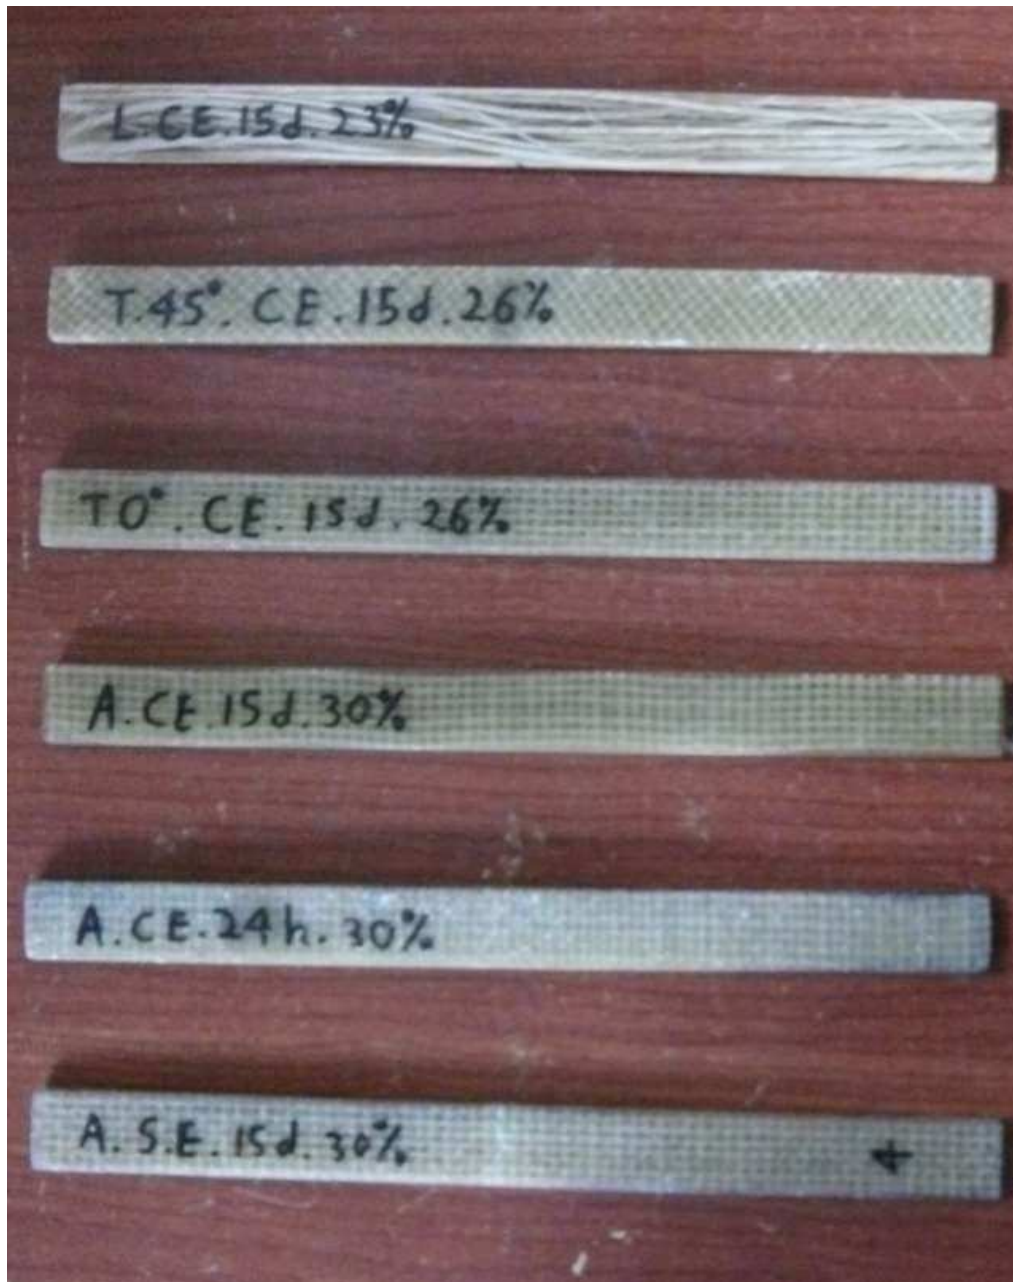 L.CE.15d.23%
T.45°.CE.15d.26%
T0°.CE.15d.26%
A.CE.15d.30%
A.CE.24h.30%
A.S.E.15d.30% 4